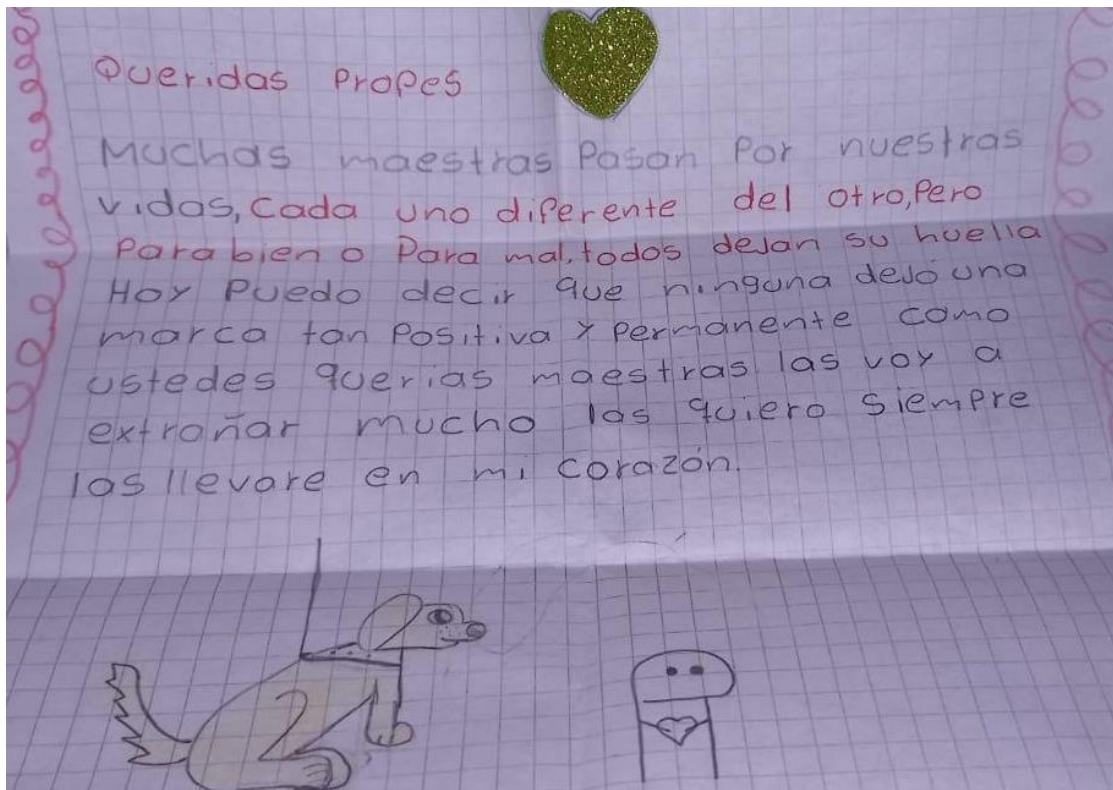 Queridas Profes
Muchas maestras Pasan Por nuestras
vidas, Cada uno diferente del otro, Pero
Para bien o Para mal, todos dejan su huella
Hoy Puedo decir que ninguna dejó una
marca tan Positiva y Permanente como
ustedes querias maestras las voy a
extrañar mucho las quiero siempre
las llevare en mi corazón.